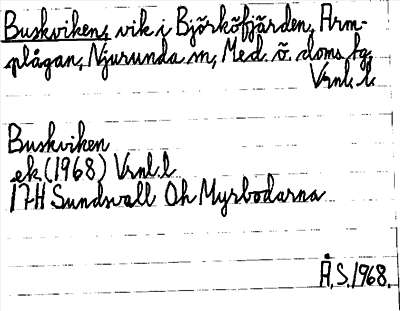 Buskviken, vik i Björköfjärden, Arm-
plågan, Njurunda sn, Med. ö. doms. tg,
Vrnl. l.
Buskviken
ek. (1968) Vrnl. l
17H Sundsvall Öh Myrbodarna
Å.S. 1968.